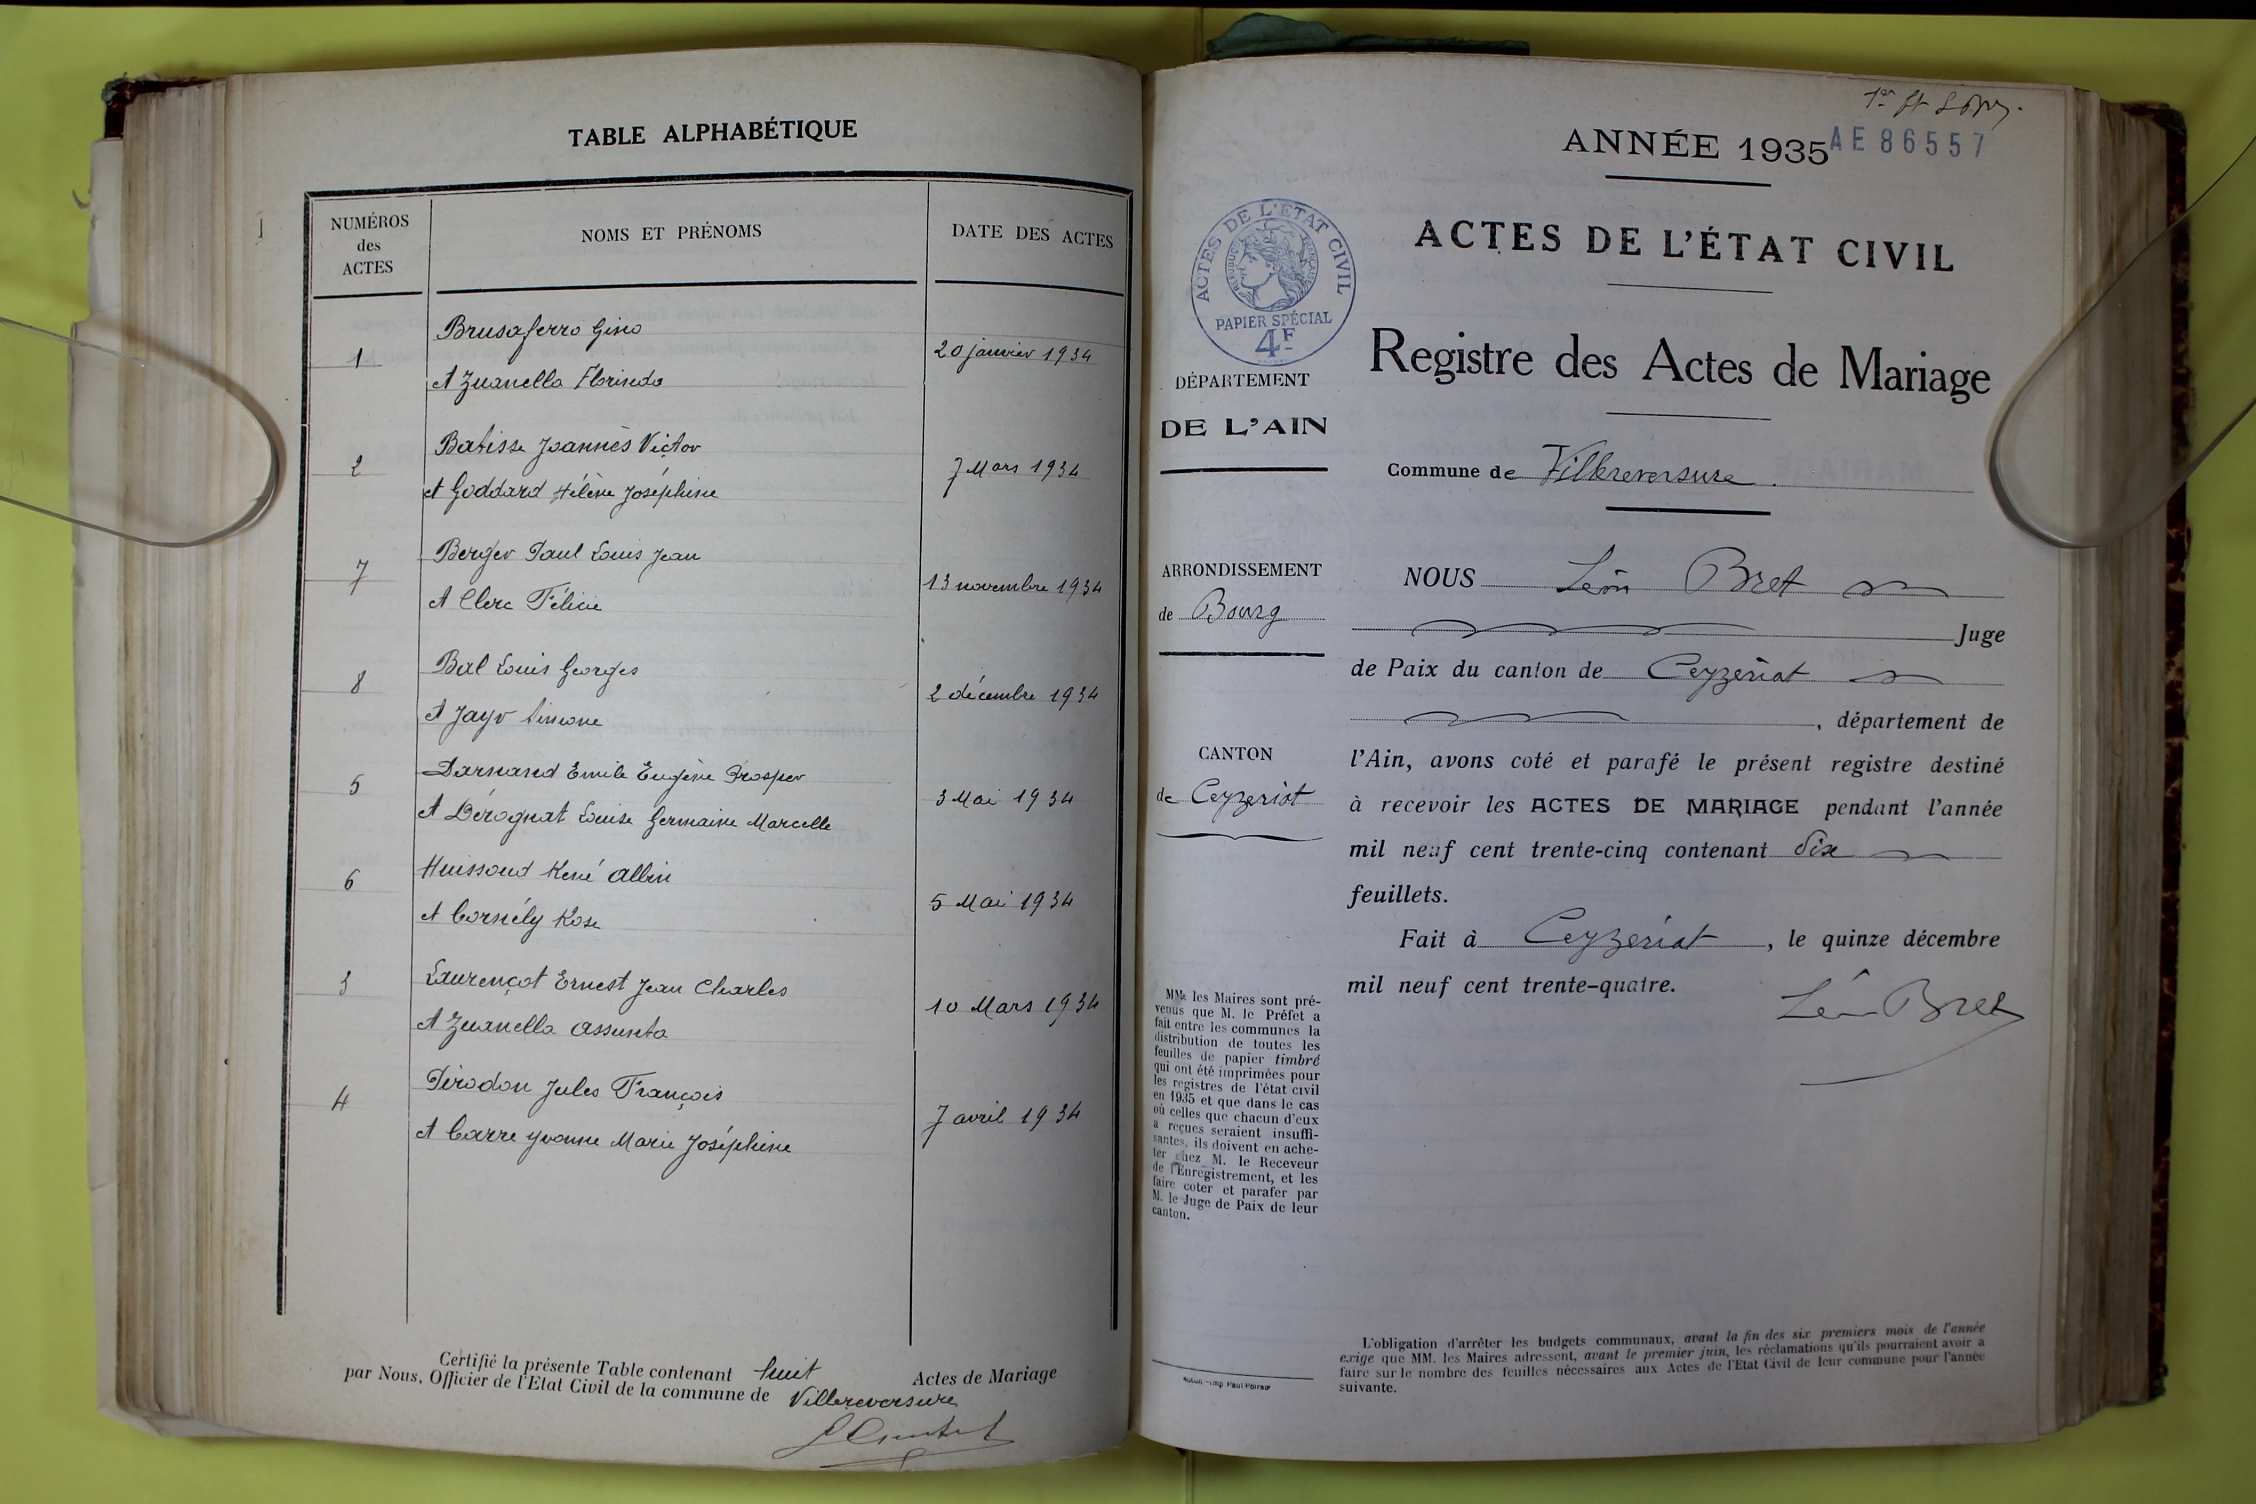 TABLE ALPHABÉTIQUE
NUMÉROS
des
ACTES
NOMS ET PRÉNOMS
DATE DES ACTES
1
Brusaferro Gino
et Zuanella Florinda
20 janvier 1934
2
Batisse Joannès Victor
et Goddard Hélène Joséphine
7 Mars 1934
7
Berger Paul Louis Jean
et Clerc Félicie
13 novembre 1934
8
Bal Louis Georges
et Jayr Simone
2 décembre 1934
5
Darnand Emile Eugène Prosper
et Dérognat Louise Germaine Marcelle
3 Mai 1934
6
Huissoud René Albin
et Cornély Rose
5 Mai 1934
3
Laurençot Ernest Jean Charles
et Zuanella Assunta
10 Mars 1934
4
Pirodon Jules François
et Carre Yvonne Marie Joséphine
7 avril 1934
Certifié la présente Table contenant huit Actes de Mariage
par Nous, Officier de l'Etat Civil de la commune de Villereversure
ANNÉE 1935
AE 86557
ACTES DE L'ÉTAT CIVIL
ACTES DE L'ETAT CIVIL
PAPIER SPÉCIAL
4F
Registre des Actes de Mariage
DÉPARTEMENT
DE L'AIN
Commune de Villereversure
ARRONDISSEMENT
de Bourg
CANTON
de Ceyzeriat
NOUS Léon Bret
Juge
de Paix du canton de Ceyzeriat
, département de
l'Ain, avons coté et parafé le présent registre destiné
à recevoir les ACTES DE MARIAGE pendant l'année
mil neuf cent trente-cinq contenant Six
feuillets.
Fait à Ceyzeriat, le quinze décembre
mil neuf cent trente-quatre.
Léon Bret
MM. les Maires sont pré-
venus que M. le Préfet a
fait entre les communes la
distribution de toutes les
feuilles de papier timbré
qui ont été imprimées pour
les registres de l'état civil
en 1935 et que dans le cas
où celles que chacun d'eux
a reçues seraient insuffi-
santes, ils doivent en ache-
ter chez M. le Receveur
de l'Enregistrement, et les
faire coter et parafer par
M. le Juge de Paix de leur
canton.
L'obligation d'arrêter les budgets communaux, avant la fin des six premiers mois de l'année
exige que MM. les Maires adressent, avant le premier juin, les réclamations qu'ils pourraient avoir a
faire sur le nombre des feuilles nécessaires aux Actes de l'Etat Civil de leur commune pour l'année
suivante.